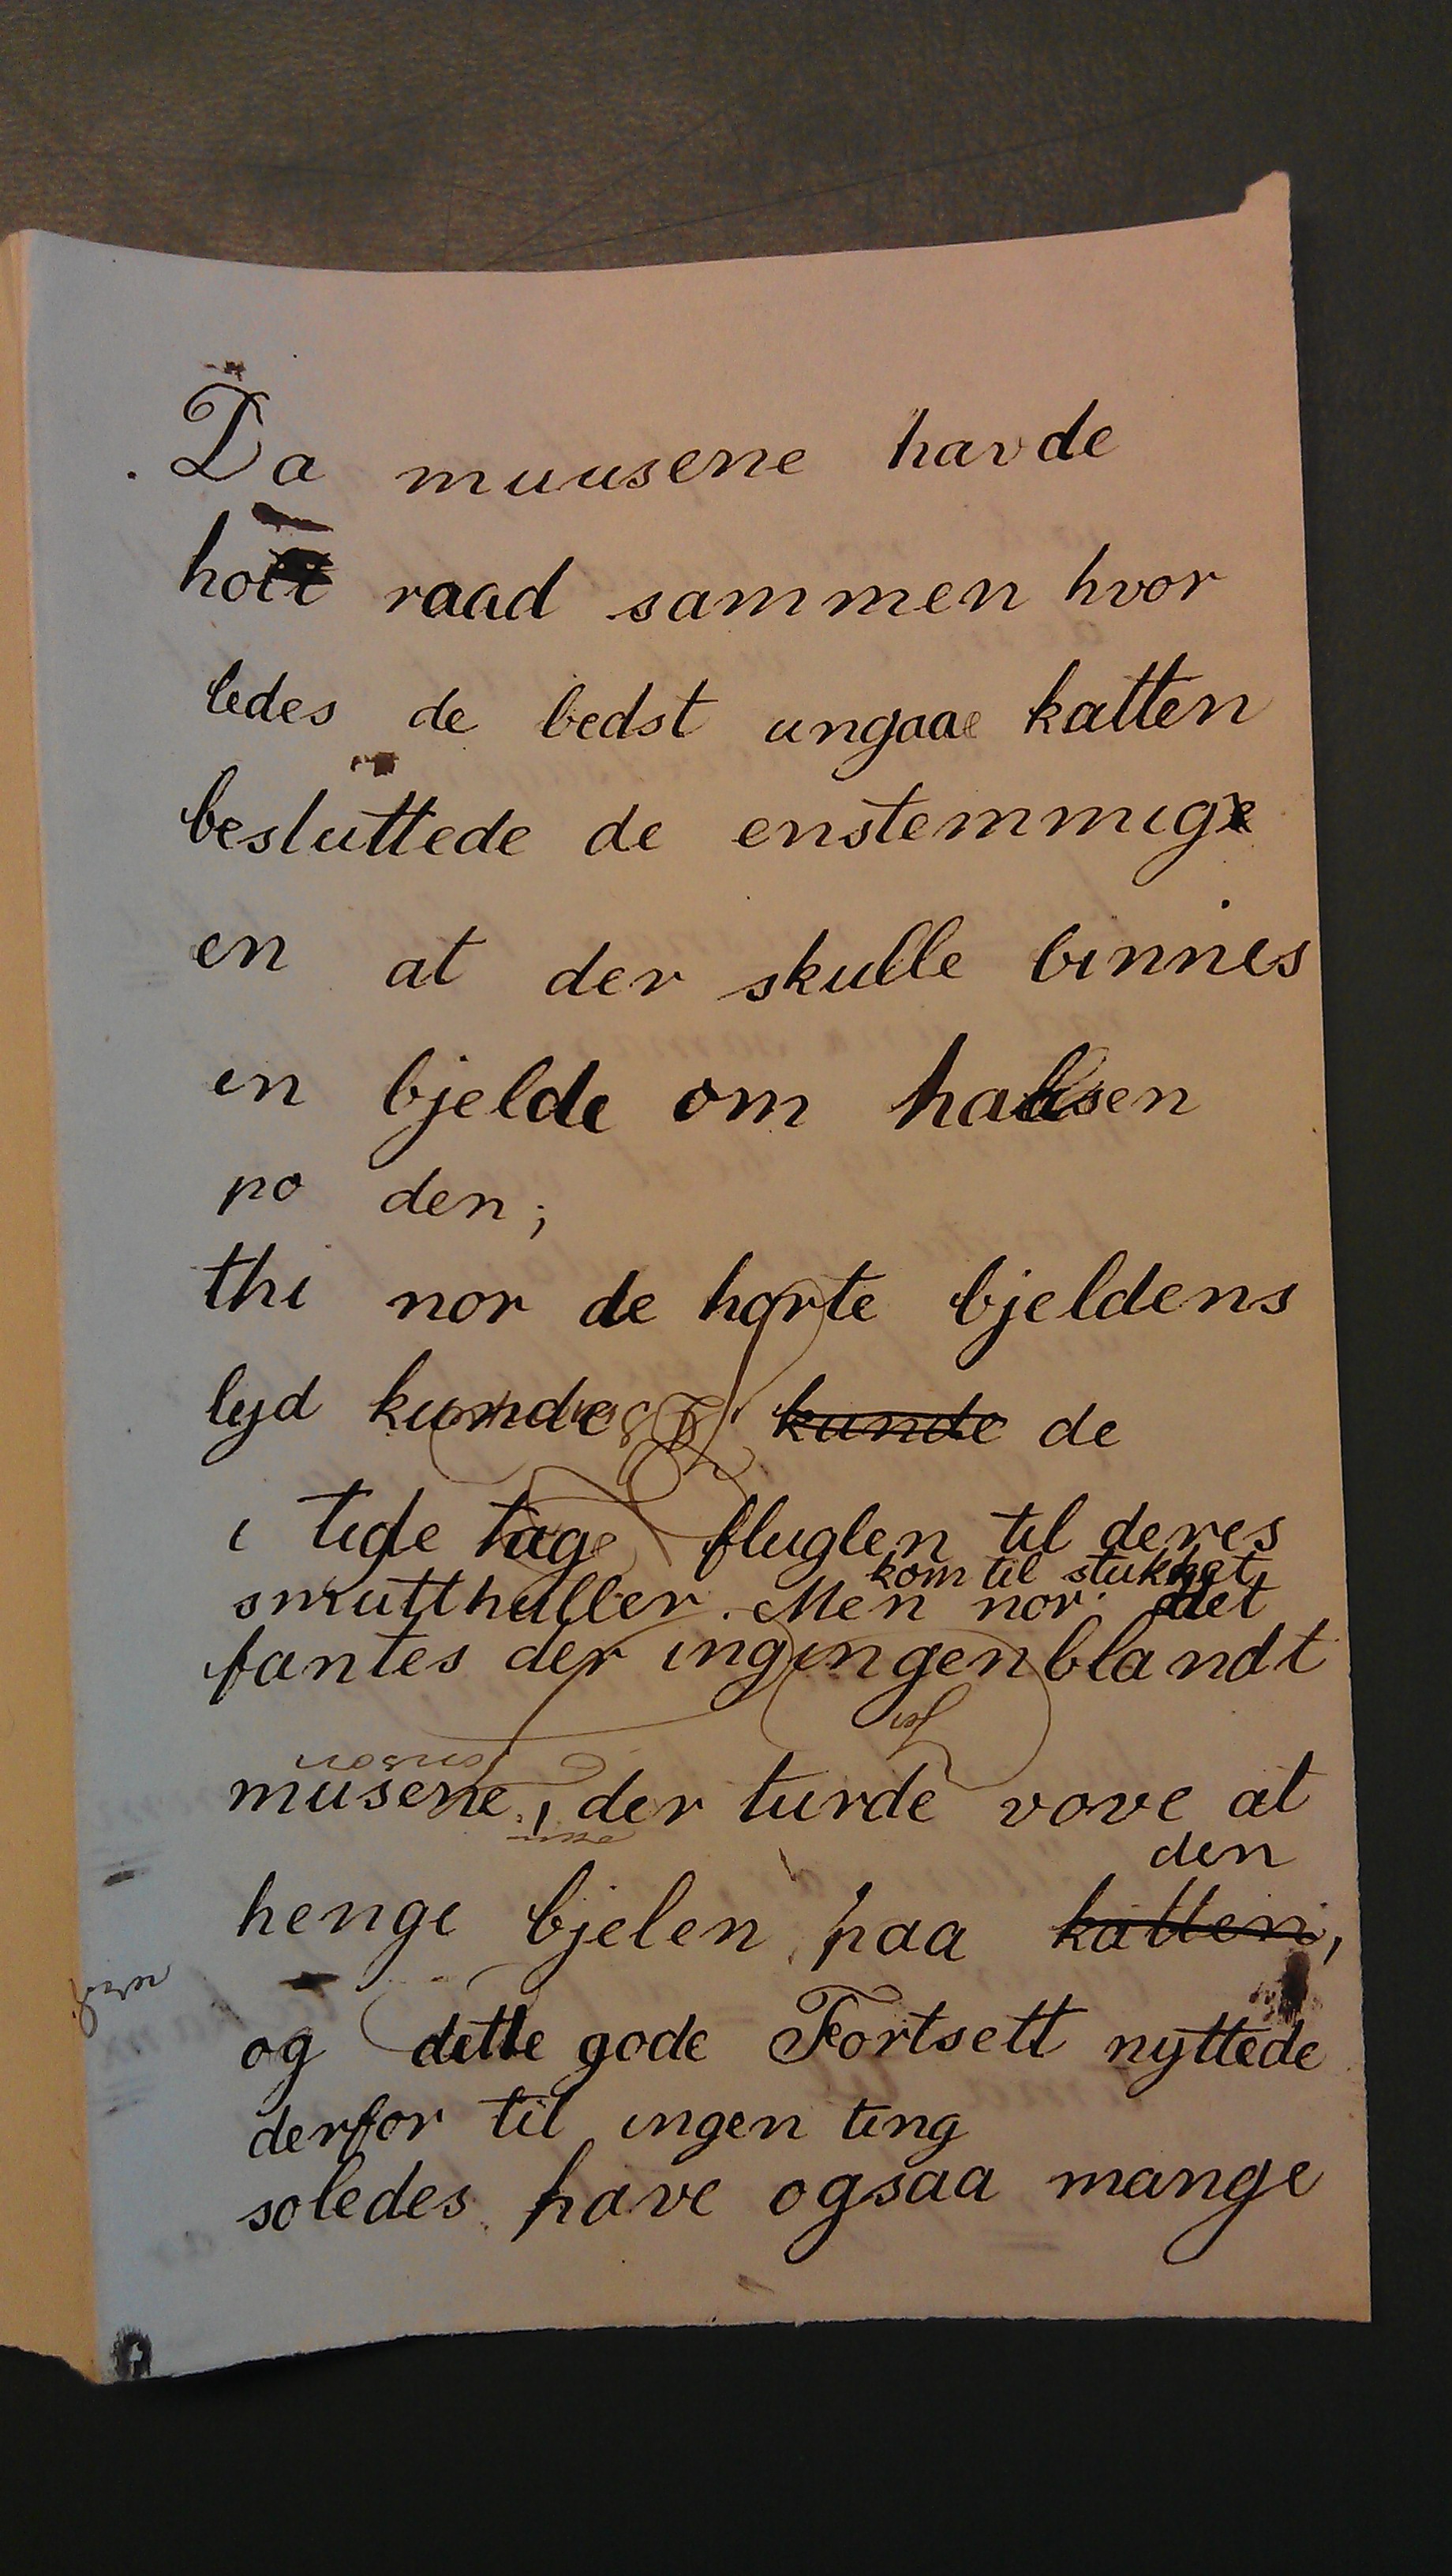 Da muusene havde
hott raad sammen hvor
ledes de bedst ungaae katten
besluttede de enstemmige
en at der skulle binnes
en bjelde om halsen
po den;
thi nor de horte bjeldens
lyd kunde kunde de
i tide tage fluglen til deres
kom til stukket,
smutthuller. Men nor det
fantes der ingingen blandt
musene, der turde vove at
den
henge bjelen paa katten,
og dette gode Fortsett nyttede
derfor til ingen ting
soledes have ogsaa mange